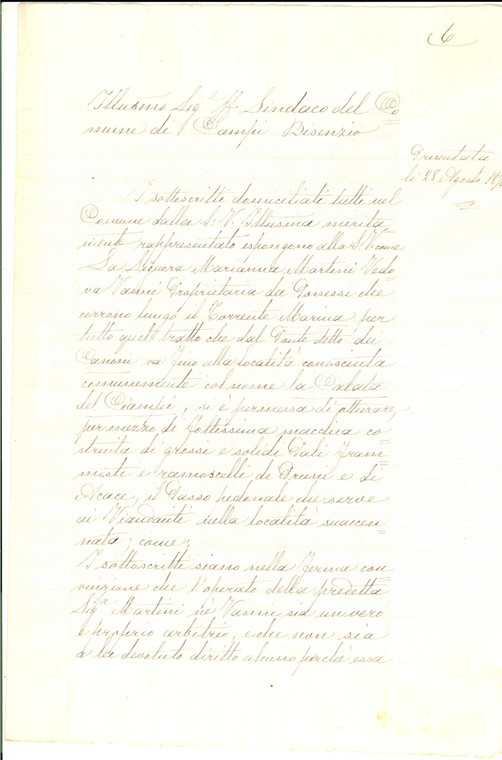 6
Illusmo Sige ff Sindaco del Co=
mune di Campi Bisenzio
Presentata
li 28 Agosto 187
I sottoscritti domiciliati tutti nel
Comune dalla S. V. Illusma merita
mente rappresentato espongono alla S. V. come
La Signora Marianna Martini Vedo=
va Vanni Proprietaria dei Possessi che
corrono lungo il Torrente Marina per
tutto quel tratto che dal Ponte detto dei
Canoni va fino alla località conosciuta
comunemente col nome la Calata
del Ciampi, si è permessa di otturare,
per mezzo di foltissima macchia co=
struita di grossi e solidi Pali fram=
misti e ramoscelli di Pruni e di
Acace, il Passo pedonale che serve
ai Viandanti nella località suaccen=
nata; come;
I sottoscritti siano nella ferma con=
vinzione che l'operato della predetta
Siga Martini ne' Vanni sia un vero
e proprio arbitrio, e che non sia
a lei devoluto diritto alcuno perchè essa